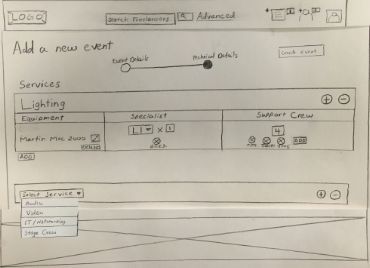 LOGO
Search Freelancers Advanced
Add a new event
Event Details
Technical Details
Services
Lighting
Equipment Specialist Support Crew
LI x 1
4
Martin Mac 2000
ADD
Select Service
Audio
Video
IT/Networking
Stage Crew